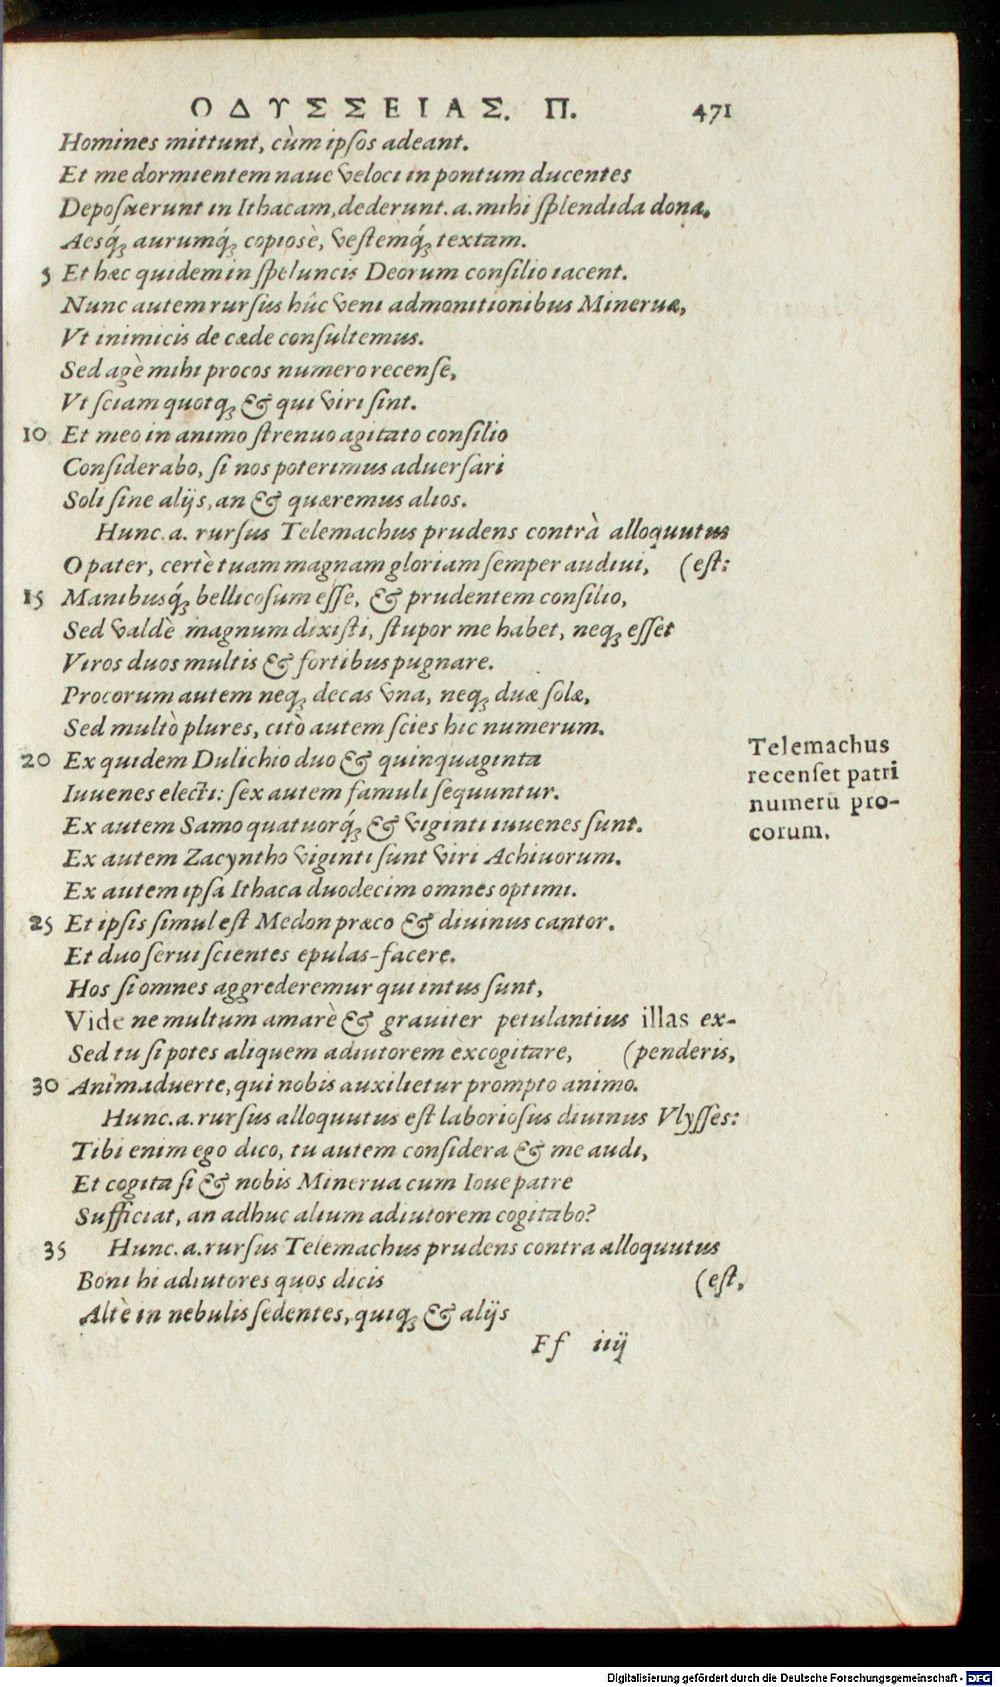 ΟΔΥΣΣΕΙΑΣ. Π. 471
Homines mittunt, cùm ipſos adeant.
Et me dormientem naue veloci in pontum ducentes
Depoſuerunt in Ithacam, dederunt. a. mihi ſplendida dona.
Aesq́; aurumq́; copiosè, veſtemq́; textam.
5 Et hæc quidem in ſpeluncis Deorum conſilio iacent.
Nunc autem rurſus hûc veni admonitionibus Mineruæ,
Vt inimicis de cæde conſultemus.
Sed agè mihi procos numero recenſe,
Vt ſciam quotq; & qui viri ſint.
10 Et meo in animo ſtrenuo agitato conſilio
Conſiderabo, ſi nos poterimus aduerſari
Soli ſine alijs, an & quæremus alios.
Hunc. a. rurſus Telemachus prudens contrà alloquutus
O pater, certè tuam magnam gloriam ſemper audiui, (eſt:
15 Manibusq́; bellicoſum eſſe, & prudentem conſilio,
Sed valdè magnum dixiſti, ſtupor me habet, neq; eſſet
Viros duos multis & fortibus pugnare.
Procorum autem neq; decas vna, neq; duæ ſolæ,
Sed multò plures, citò autem ſcies hic numerum.
20 Ex quidem Dulichio duo & quinquaginta
Iuuenes electi: ſex autem famuli ſequuntur.
Ex autem Samo quatuorq́; & viginti iuuenes ſunt.
Ex autem Zacyntho viginti ſunt viri Achiuorum.
Ex autem ipſa Ithaca duodecim omnes optimi.
25 Et ipſis ſimul eſt Medon præco & diuinus cantor.
Et duo ſerui ſcientes epulas-facere.
Hos ſi omnes aggrederemur qui intus ſunt,
Vide ne multum amarè & grauiter petulantius illas ex-
Sed tu ſi potes aliquem adiutorem excogitare, (penderis,
30 Animaduerte, qui nobis auxilietur prompto animo.
Hunc. a. rurſus alloquutus eſt laborioſus diuinus Vlyſſes:
Tibi enim ego dico, tu autem conſidera & me audi,
Et cogita ſi & nobis Minerua cum Ioue patre
Sufficiat, an adhuc alium adiutorem cogitabo?
35 Hunc. a. rurſus Telemachus prudens contra alloquutus
Boni hi adiutores quos dicis (eſt,
Altè in nebulis ſedentes, quiq; & alijs
Ff iiij
Telemachus
recenſet patri
numerū pro-
corum.
Digitalisierung gefördert durch die Deutsche Forschungsgemeinschaft - DFG